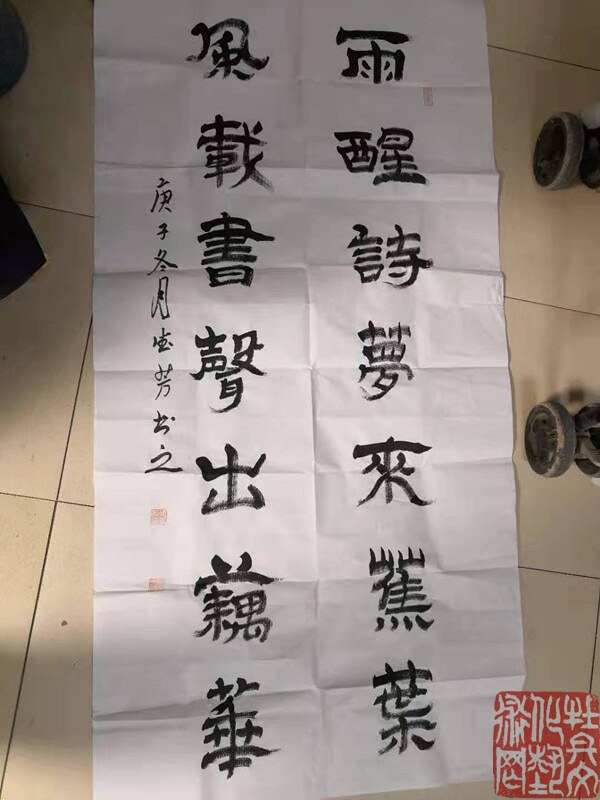 雨醒詩夢來蕉葉
風載書聲出藕華
庚子冬月宏芳书之